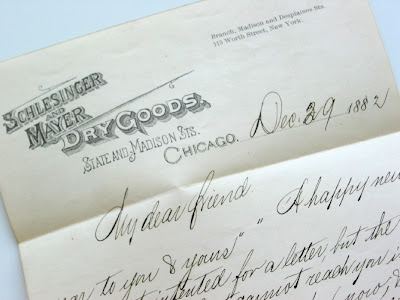 Branch, Madison and Desplaines Sts.
115 Worth Street, New York.
SCHLESINGER
AND
MAYER
DRY GOODS.
STATE AND MADISON STS.
CHICAGO.
Dec. 29 1882
My dear friend.
" A happy new
year to you & yours"
intended for a letter, but the
cannot reach you i
now,